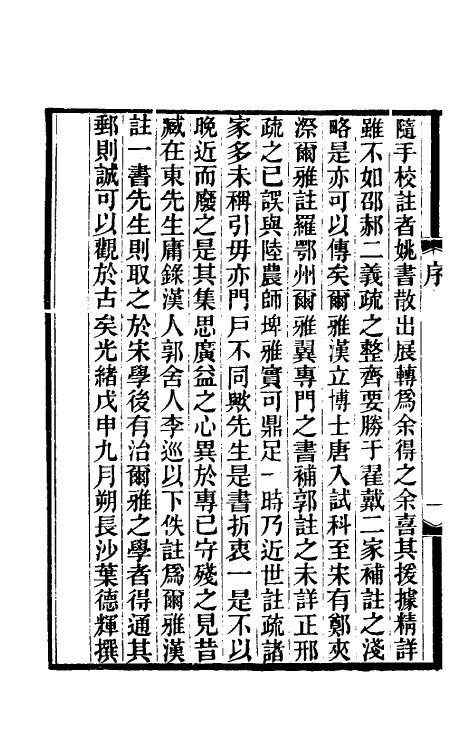 序
一
隨手校註者姚書散出展轉爲余得之余喜其援據精詳
雖不如邵郝二義疏之整齊要勝于翟戴二家補註之淺
略是亦可以傳矣爾雅漢立博士唐入試科至宋有鄭夾
漈爾雅註羅鄂州爾雅翼專門之書補郭註之未詳正邢
疏之已誤與陸農師埤雅實可鼎足一時乃近世註疏諸
家多未稱引毋亦門戸不同歟先生是書折衷一是不以
晚近而廢之是其集思廣益之心異於專已守殘之見昔
臧在東先生庸錄漢人郭舍人李巡以下佚註爲爾雅漢
註一書先生則取之於宋學後有治爾雅之學者得通其
郵則誠可以觀於古矣光緒戊申九月朔長沙葉德輝撰